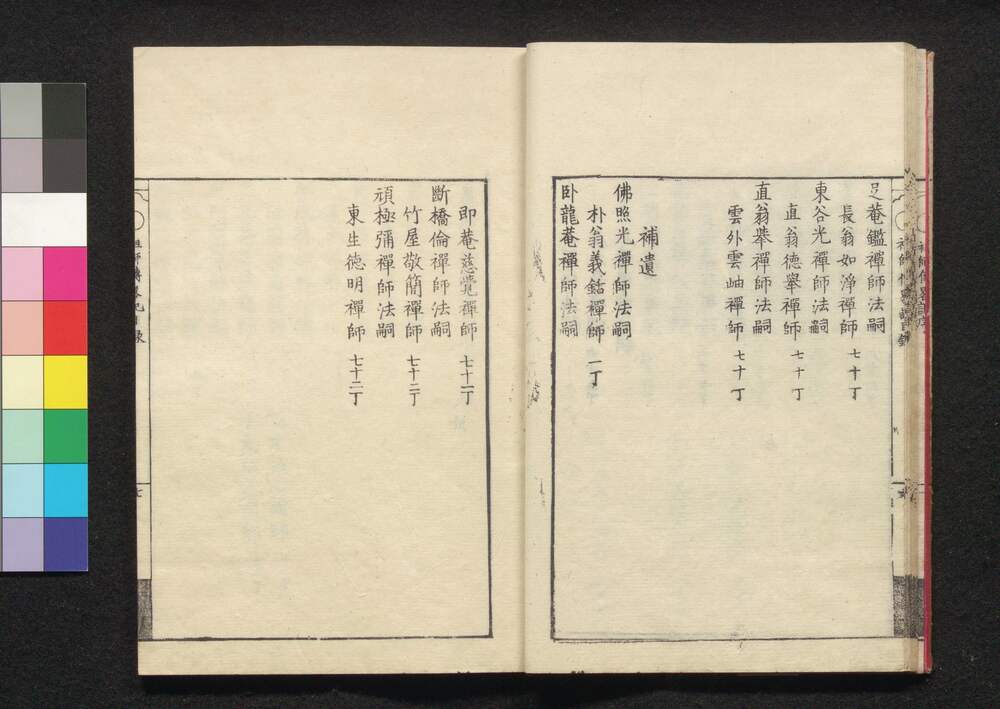 足菴鑑禪師法嗣
長翁如淨禪師 七十丁
東谷光禪師法嗣
直翁德舉禪師 七十丁
直翁舉禪師法嗣
雲外雲岫禪師 七十丁
補遺
佛照光禪師法嗣
朴翁義銛禪師 一丁
卧龍菴禪師法嗣
即菴慈覺禪師 七十一丁
斷橋倫禪師法嗣
竹屋敬簡禪師 七十二丁
頑極彌禪師法嗣
東生德明禪師 七十二丁